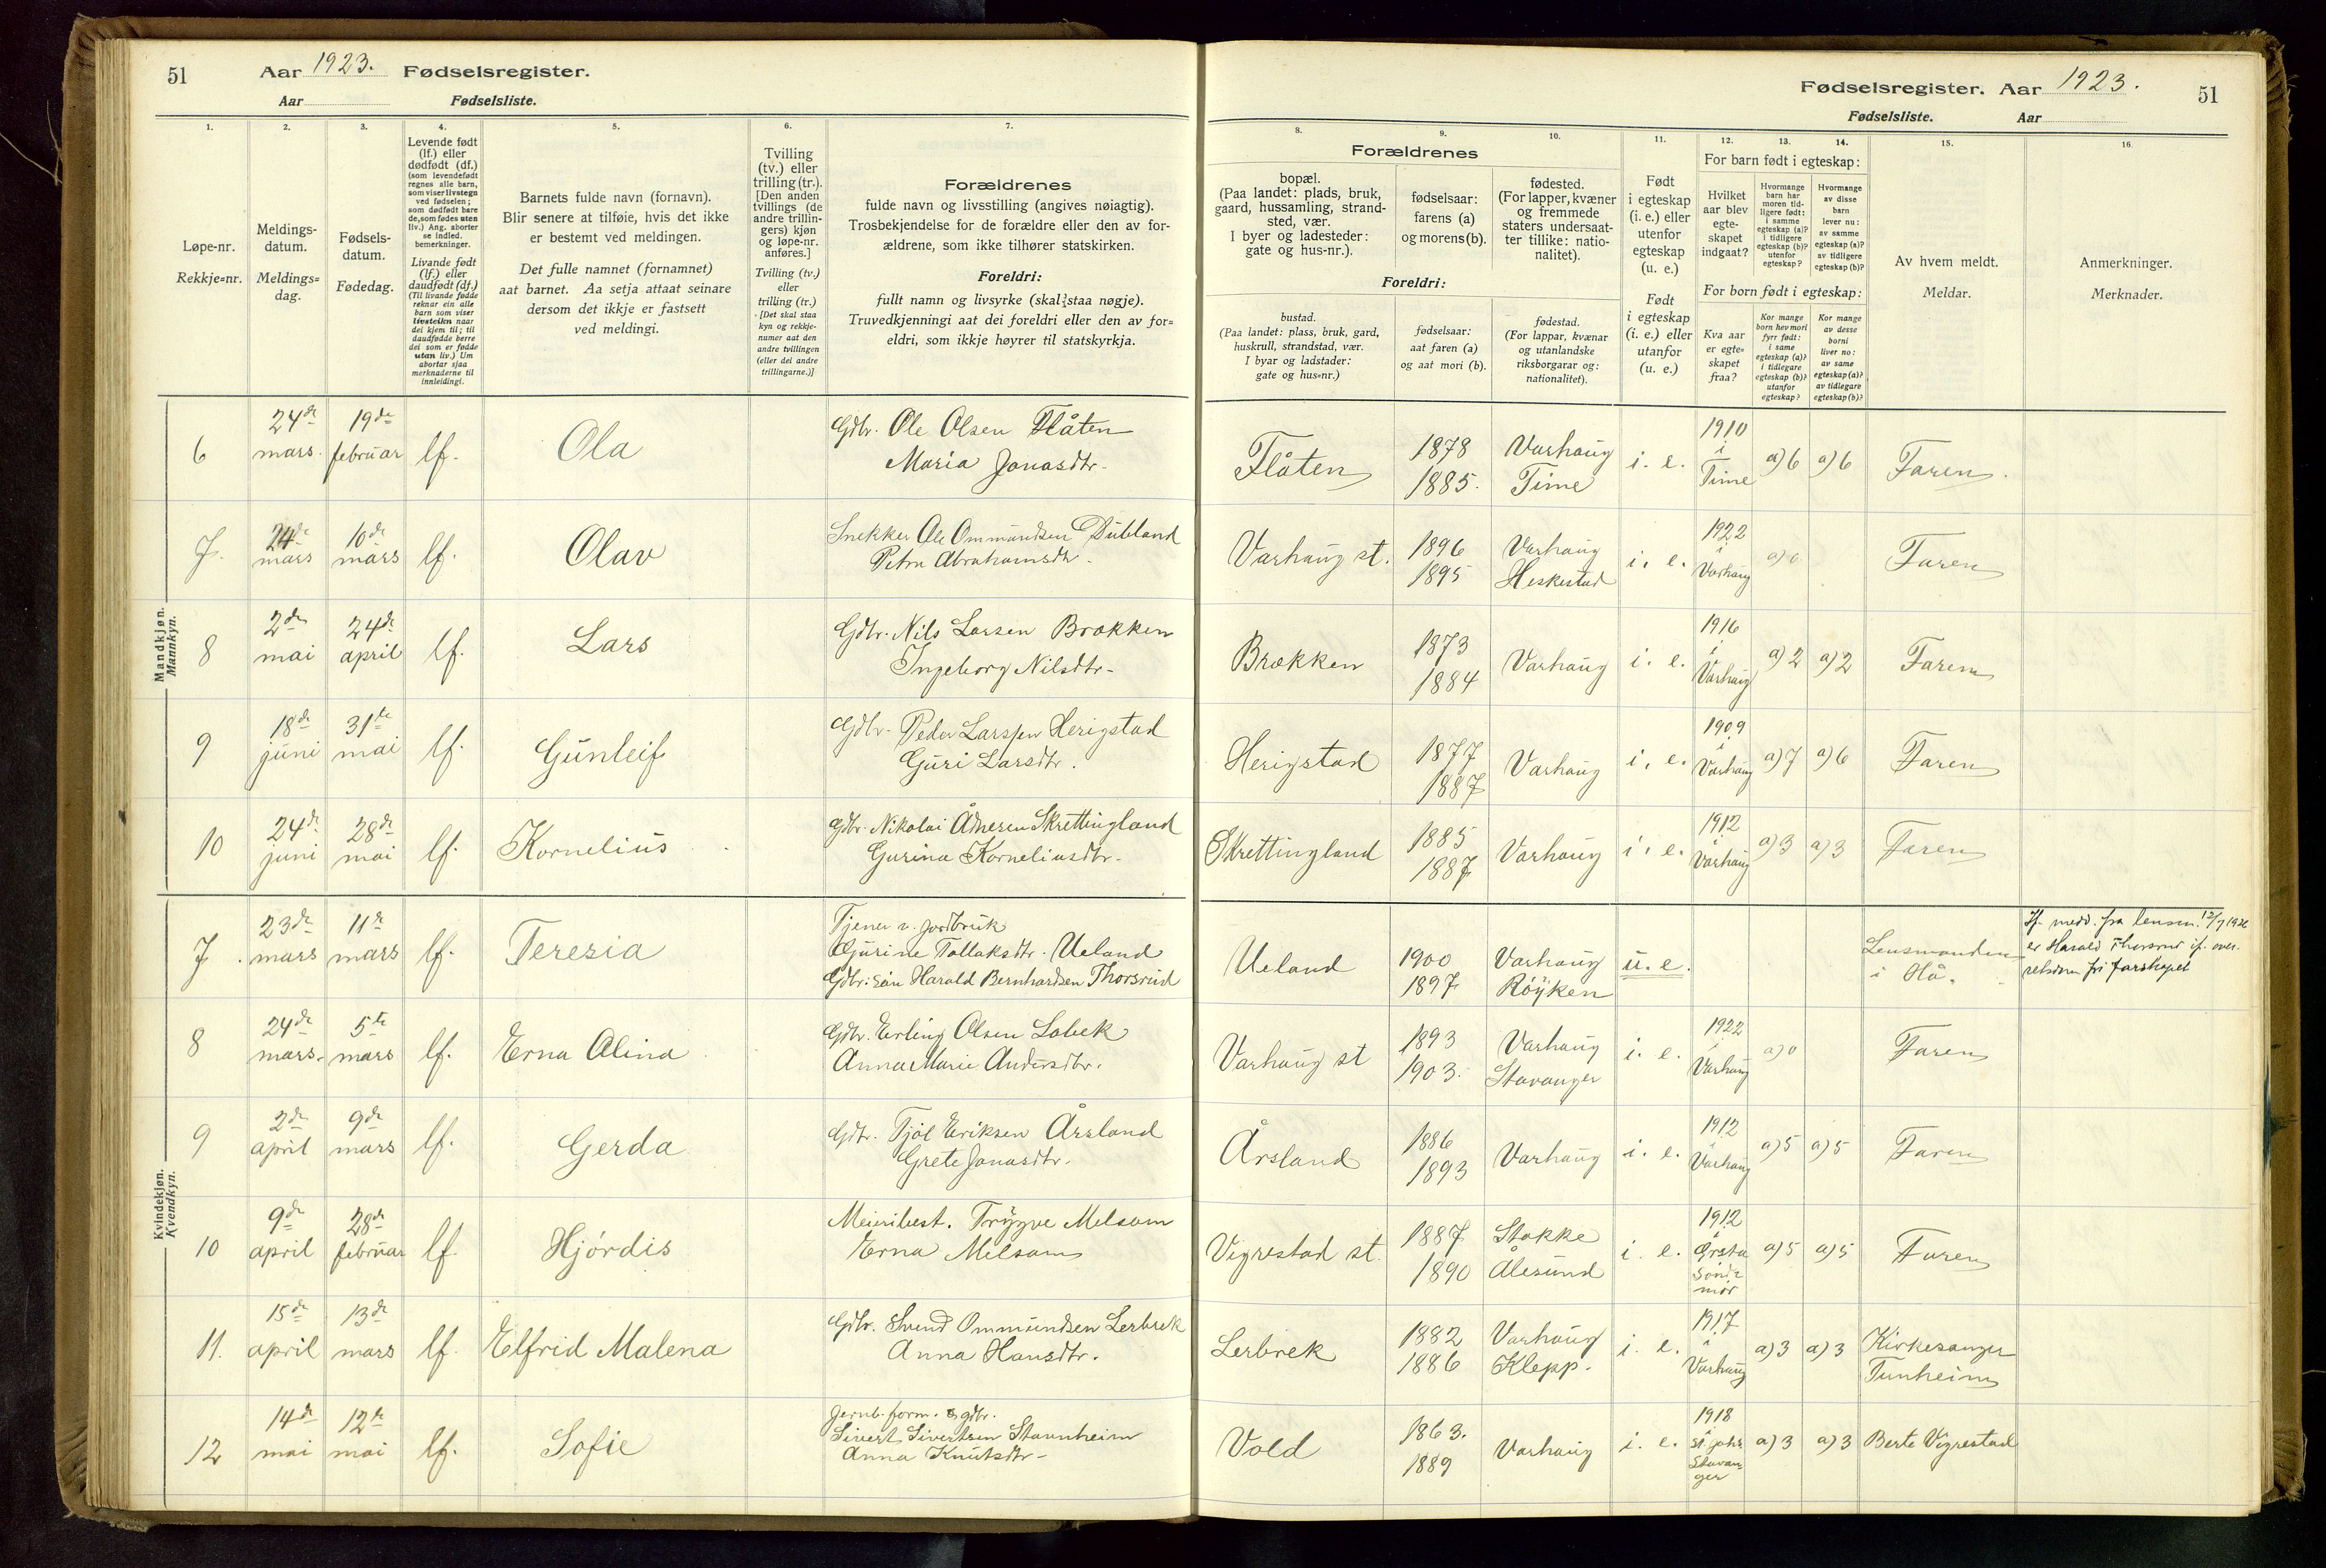 51 Aar 1923. Fødselsregister.
Aar Fødselsliste.
Fødselsregister. Aar 1923. 51
Fødselsliste. Aar
1.
Løpe-nr.
Rekkje=nr.
2.
Meldings-
datum.
Meldings=
dag.
3.
Fødsels-
datum.
Fødedag.
4.
Levende født
(lf.) eller
dødfødt (df.)
(som levendefødt
regnes alle barn,
som viser livstegn
ved fødselen;
som dødfødt bare
de, som fødes uten
liv.) Ang. aborter
se indled.
bemerkninger.
Livande født
(lf.) eller
daudfødt (df.)
(Til livande fødde
reknar ein alle
barn som viser
livsteikn naar
dei kjem til; til
daudfødde berre
dei som er fødde
utan liv.) Um
abortar sjaa
merknaderne til
innleidingi.
5.
Barnets fulde navn (fornavn).
Blir senere at tilføie, hvis det ikke
er bestemt ved meldingen.
Det fulle namnet (fornamnet)
aat barnet. Aa setja attaat seinare
dersom det ikkje er fastsett
ved meldingi.
6.
Tvilling
(tv.) eller
trilling (tr.).
[Den anden
tvillings (de
andre trillin-
gers) kjøn
og løpe-nr.
anføres.]
Tvilling (tv.)
eller
trilling (tr.)
[Det skal staa
kyn og rekkje-
numer aat den
andre tvillingen
(eller dei andre
trillingarne.)]
7.
Forældrenes
fulde navn og livsstilling (angives nøiagtig).
Trosbekjendelse for de forældre eller den av for-
ældrene, som ikke tilhører statskirken.
Foreldri:
fullt namn og livsyrke (skal staa nøgje).
Truvedkjenningi aat dei foreldri eller den av for=
eldri, som ikkje høyrer til statskyrkja.
8. 9. 10.
Forældrenes
bopæl.
(Paa landet: plads, bruk,
gaard, hussamling, strand-
sted, vær.
I byer og ladesteder:
gate og hus-nr.).
fødselsaar:
farens (a)
og morens (b).
fødested.
(For lapper, kvæner
og fremmede
staters undersaat-
ter tillike: natio-
nalitet).
Foreldri:
bustad.
(Paa landet: plass, bruk, gard,
huskrull, strandstad, vær.
I byar og ladstader:
gate og hus=nr.)
fødselsaar:
aat faren (a)
og aat mori (b).
fødestad.
(For lappar, kvænar
og utanlandske
riksborgarar og:
nationalitet).
11.
Født
i egteskap
(i. e.) eller
utenfor
egteskap
(u. e.)
Født
i egteskap
(i. e.) eller
utanfor
(u. e.)
12. 13. 14.
For barn født i egteskap:
Hvilket
aar blev
egte-
skapet
indgaat?
Hvormange
barn har
moren tid-
ligere født:
i samme
egteskap (a)?
i tidligere
egteskap (b)?
utenfor
egteskap?
Hvormange
av disse
barn
lever nu:
av samme
egteskap (a)?
av tidligere
egteskap (b)?
For born født i egteskap:
Kva aar
er egte=
skapet
fraa?
Kor mange
born hev mori
fyrr født:
i same
egteskap (a)?
i tidlegare
egteskap (b)?
utanfor
egteskap?
Kor mange
av desse
borni
liver no:
av same
egteskap (a)?
av tidlegare
egteskap (b)?
15.
Av hvem meldt.
Meldar.
16.
Anmerkninger.
Merknader.
Mandkjøn.
Mannkyn.
6 24de mars. 19de februar lf. Ola Gdbr. Ole Olsen Flåten
Maria Jonasdtr. Flåten 1878 1885. Varhaug Time i. e. 1910 i Time a) 6 a) 6 Faren.
7. 24de mars 10de mars lf. Olav Snekker Ole Ommundsen Dubland
Petra Abrahamsdtr. Varhaug st. 1896 1895 Varhaug Heskestad i. e. 1922 i Varhaug a) 0 Faren
8 2den mai 24de april lf. Lars Gdbr. Nils Larsen Brækken
Ingeborg Nilsdtr. Brækken 1873 1884 Varhaug i. e. 1916 i Varhaug a) 2 a) 2 Faren
9 18de juni 31te mai lf. Gunleif Gdbr. Peder Larssen Herigstad
Guri Larsdtr. Herigstad 1877 1887 Varhaug i. e. 1909 i Varhaug a) 7 a) 6 Faren
10 24de juni 28de mai lf. Kornelius Gdbr. Nikolai Ånesen Skrettingland
Gurina Korneliusdtr. Skrettingland 1885 1887 Varhaug i. e. 1912 i Varhaug a) 3 a) 3 Faren
Kvindekjøn.
Kvendkyn.
7. 23de mars 11te mars lf. Teresia Tjener v. jordbruk
Gurine Tollaksdtr. Ueland
Gdbr. søn Harald Bernhardsen Thorsrud Ueland 1900 1897 Varhaug Röyken u. e. Lensmanden i Hå. If. medd. fra lensm. 12/7 1926
er Harald Thorsrud if. over-
retsdom fri farskapet
8 24de mars. 5te mars lf. Erna Alina Gdbr. Erling Olsen Lobek
Anna Marie Andersdtr. Varhaug st 1893 1903. Varhaug Stavanger i. e. 1922 i Varhaug a) 0 Faren
9 2de april 9de mars lf. Gerda Gdbr. Tjöl Eriksen Årsland
Grete Jonasdtr. Årsland 1886 1893 Varhaug i. e. 1912 i Varhaug a) 5 a) 5 Faren
10 9de april 28de februar lf. Hjördis Meieribest. Trygve Melsom
Erna Melsom Vigrestad st. 1887 1890 Stokke Ålesund i. e. 1912 i Örsta Söndmör a) 5 a) 5 Faren
11. 15de april 13de mars lf. Elfrid Malena Gdbr. Svend Ommundsen Lerbrek
Anna Hansdtr. Lerbrek 1882 1886 Varhaug Klepp. i. e. 1917 i Varhaug a) 3 a) 3 Kirkesanger Tunheim
12 14de mai 12te mai lf. Sofie Jernb. form. & gdbr.
Sivert Sivertsen Stavnheim
Anna Knutsdtr. Vold 1863. 1889 Varhaug i. e. 1918 St. Joh. Stavanger a) 3 a) 3 Berte Vigrestad